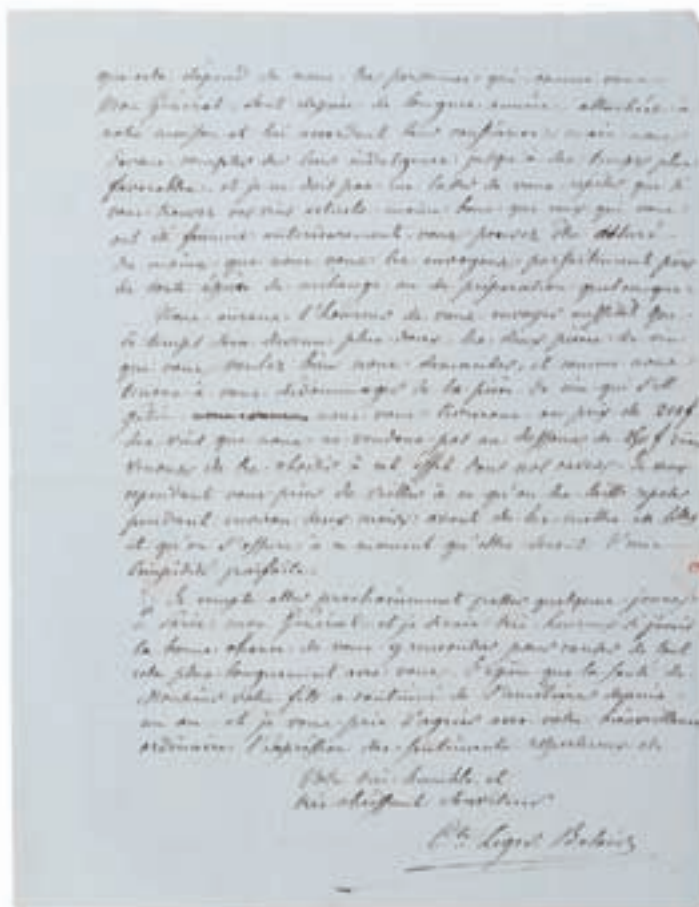 que cela dépend de nous les personnes qui comme vous
Mon Général sont depuis de longues années attachées à
notre maison et lui accordent leur confiance, mais nous
comptes sur leur indulgence jusqu'à des temps plus
favorables, et je ne dois pas me lasser de vous répéter que si
vous trouvez vos vins actuels moins bons que ceux qui vous
ont été fournis antérieurement vous pouvez être assuré
du moins que nous vous les envoyons parfaitement purs
de toute espèce de mélange ou de préparation quelconque.
Nous aurons l'honneur de vous envoyer aussitôt que
le temps sera devenu plus doux les deux pièces de vin
que vous voulez bien nous demander, et comme nous
tenons à vous dédommager de la pièce de vin qui s'est
gâtée nous vous au prix de 200f
des vins que nous ne vendons pas au dessous de
de les choisir à cet effet dans nos caves. Je vous
cependant vous prier de veiller à ce qu'on les laisse reposer
pendant environ deux mois avant de les mettre en
et qu'on s'assure à ce moment qu'elles soient d'une
limpidité parfaite.
Je compte aller prochainement passer quelques jours
à Paris mon Général et je serais très heureux si j'avais
la bonne chance de vous y rencontrer pour causer de tout
cela plus longuement avec vous. J'espère que la santé de
Monsieur votre fils a continué de s'améliorer depuis
un an et je vous prie d'agréer avec votre bienveillance
ordinaire l'expression des sentiments respectueux de
Votre très humble et
très obéissant serviteur
Cte Liger Belair